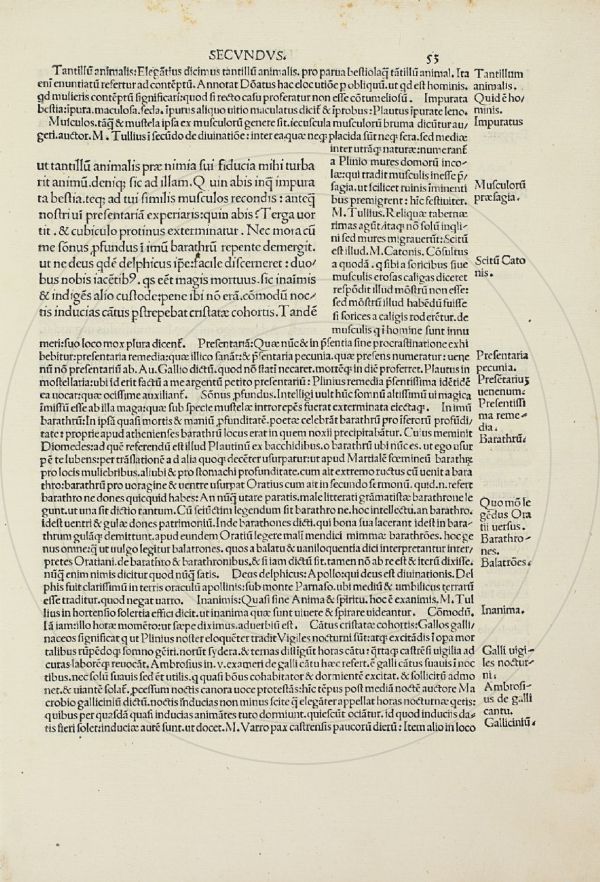 SECVNDVS. 53
Tantillũ animalis: Elegãtius dicimus tantillũ animalis. pro parua bestiolaq̃ tãtillũ animal. Ita
eni enuntiatũ refertur ad contẽptũ. Annotat Dõatus hac elocutiõe p obliquũ. ut qd est hominis.
qd mulieris contẽptũ significari: quod si recto casu proferatur non esse cõtumeliosũ. Impurata
bestia: ipura. maculosa. feda. ipurus aliquo uitio maculatus dicit̃ & iprobus: Plautus ipurate leno.
Musculos. tãq̃ & mustela ipsa ex musculorũ genere sit. iecuscula musculorũ bruma dicũtur au/
geri. auctor. M. Tullius i secũdo de diuinatiõe: inter ea. quæ neq; placida sũt neq; fera. sed mediæ
Tantillum
animalis.
Quid ẽ ho/
minis.
Impuratus
ut tantillũ animalis præ nimia sui fiducia mihi turba
rit animũ. deniq; sic ad illam. Q uin abis inq̃ impura
ta bestia. teq; ad tui similis musculos recondis: anteq̃
nostri ui presentaria experiaris: quin abis? Terga uor
tit. & cubiculo protinus exterminatur. Nec mora cũ
me sõnus, pfundus i imũ barathrũ repente demergit.
ut ne deus qdẽ delphicus ipe: facile discerneret: duo/
bus nobis iacẽtib9. qs eẽt magis mortuus. sic inaimis
& indigẽs alio custode: pene ibi nõ erã. cõmodũ noc/
tis inducias cãtus pstrepebat cristatæ cohortis. Tandẽ
inter utrãq; naturæ: numerant̃
a Plinio mures domorũ inco/
læ: qui tradit musculis inesse p̃/
sagia. ut scilicet ruinis imminenti
bus premigrent: hic festiuiter.
M. Tullius. Reliquæ tabernæ
rimas agũt. itaq; nõ solũ inqli/
ni sed mures migrauerũt: Scitũ
est illud. M. Catonis. Cõsultus
a quodã. q sibi a soricibus siue
musculis erosas caligas diceret
respõdit illud mõstrũ non esse:
sed mõstrũ illud habẽdũ fuisse
si sorices a caligis roderẽtur. de
musculis q i homine sunt innu
Musculorũ
præsagia.
Scitũ Cato
nis.
meri: suo loco mox plura dicent̃. Presentariã: Quæ nũc & in p̃sentia sine procrastinatione exhi
bebitur: presentaria remedia: quæ illico sanãt: & p̃sentaria pecunia. quæ presens numeratur: uene
nũ nõ presentariũ ab. Au. Gallio dictũ. quod nõ stati necaret. mortẽq; in diẽ proferret. Plautus in
mostellaria: ubi id erit factũ a me argenti petito presentario: Plinius remedia p̃sentissima idẽtidẽ
ea uocat: quæ ocissime auxiliant̃. Sõnus, pfundus. Intelligi uult hũc somnũ altissimũ ui magica
imissũ esse ab illa maga: quæ sub specie mustelæ introrepẽs fuerat exterminata eiectaq;. In imũ
barathrũ: In ipsa quasi mortis & maniũ, pfunditatẽ. poetæ celebrãt barathrũ pro iferorũ profũdi/
tate: proprie apud athenienses barathrũ locus erat in quem noxii precipitabãtur. Cuius meminit
Diomedes: ad quẽ referendũ est illud Plautinũ ex bacchidibus. o barathrũ ubi nũc es. ut ego usur
pẽ te lubens. per translationẽ a d alia quoq; decẽter usurpat̃: ut apud Martialẽ fœmineũ barathr̃
pro locis muliebribus. aliubi & pro stomachi profunditate. cum ait extremo ructus cũ uenit a bara
thro: barathrũ pro uoragine & uentre usurpat Oratius cum ait in secundo sermonũ. quid. n. refert
barathro ne dones quicquid habes: An nũq̃ utare paratis. male litterati grãmatistæ barathrone le
gunt. ut una sit dictio tantum. Cũ seiũctim legendum sit barathro ne. hoc intellectu. an barathro.
idest uentri & gulæ dones patrimoniũ. Inde barathones dicti. qui bona sua lacerant idest in bara/
thrum gulãq; demittunt. apud eundem Oratiũ legere malĩ mendici mimmæ barathrões. hoc ge
nus omne: q̃ ut uulgo legitut balatrones. quos a balatu & uaniloquentia dici interpretantur inter/
pretes Oratiani. de barathro & barathronibus, & si iam dictũ sit. tamen nõ ab re est & iterũ dixisse.
nũq̃ enim nimis dicitur quod nũq̃ satis. Deus delphicus: Apollo: qui deus est diuinationis. Del
phis fuit clarissimũ in terris oraculũ apollinis: sub monte Parnaso. ubi mediũ & umbilicus terrarũ
esse traditur. quod negat uarro. Inanimis: Quasi sine Anima & spiritu. hoc ẽ exanimis. M. Tul
lius in hortensio solertia effici dicit. ut inanima quæ sunt uiuere & spirare uideantur. Cõmodũ.
Iã iam: illo horæ momẽto: ut sæpe diximus. aduerbiũ est. Cãtus cristatæ cohortis: Gallos galli/
naceos significat q ut Plinius noster eloquẽter tradit Vigiles nocturni sũt: atq; excitãdis i opa mor
talibus rũpẽdoq; somno gẽiti. norũt sydera. & ternas distiguũt horas cãtu: q̃rtaq; castrẽsi uigilia ad
curas laborẽq; reuocãt. Ambrosius in. v. exameri de galli cãtu hæc refert. ẽ galli cãtus suauis i noc
tibus. nec solũ suauis sed ẽt utilis. q quasi bõus cohabitator & dormiẽtẽ excitat. & sollicitũ admo
net. & uiantẽ solat̃. pcessum noctis canora uoce protestãs: hic tẽpus post mediã noctẽ auctore Ma
crobio galliciniũ dictũ. noctis iducias non minus scite q̃ elegãter appellat horas nocturnæ q̃etis:
quibus per quasdã quasi inducias animãtes tuto dormiunt. quiescũt ociãtur. id quod induciis da/
tis fieri solet: induciæ autẽ sunt. ut docet. M. Varro pax castrensis paucorũ dierũ: Item alio in loco
Presentaria
pecunia.
Presẽtariuz
uenenum.
Presentissi
ma reme/
dia.
Barathrũ.
Quo mõ le
gẽdus Ora
tii uersus.
Barathro/
nes.
Balatrões.
Inanima.
Galli uigi/
les noctur/
ni.
Ambrosi/
us de galli
cantu.
Galliciniũ.